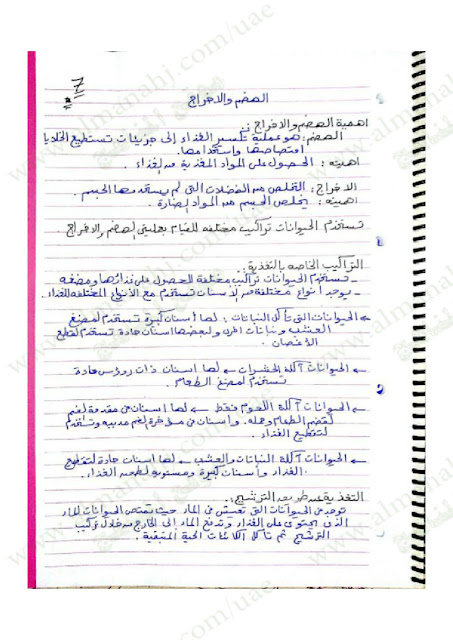 7
الهضم والاخراج
اهمية الهضم والاخراج :.
الهضم : هو عملية تكسير الغذاء إلى جزيئات تستطيع الخلايا
امتصاصها واستخدامها.
اهميته : الحصول على المواد المغذية من الغذاء.
الاخراج : التخلص من الفضلات التي لم يستخدمها الجسم.
اهميته : يخلص الجسم من المواد الضارة.
تستخدم الحيوانات تراكيب مختلفه للقيام بعمليتي الهضم والاخراج .
التراكيب الخاصه بالتغذية :.
- تستخدم الحيوانات تراكيب مختلفة للحصول على غذائها ومضغه
- يوجد أنواع مختلفة من الاسنان تستخدم مع الأنواع المختلفه للغذاء.
← الحيوانات التي تأكل النباتات : لها أسنان كبيرة تستخدم لمضغ
العشب ونباتات اخرى ولبعضها اسنان حادة تستخدم لقطع
الأغصان .
← الحيوانات آكلة الحشرات ← لها اسنان ذات رؤوس حادة
تستخدم لمضغ الطعام.
← الحيوانات آكلة اللحوم فقط ← لها اسنان في مقدمة الفم
لقضم الطعام وحمله. واسنان في مؤخرة الفم مدببه وتستخدم
لتقطيع الغذاء .
← الحيوانات آكلة النباتات والعشب ← لها اسنان حادة لتقطيع
الغذاء وأسنان كبيرة ومستويه لطحن الغذاء.
التغذية عن طريق الترشيح :.
توجد في الحيوانات التي تعيش في الماء حيث تمتص الحيوانات الماء
الذي يحتوي على الغذاء وتدفع الماء إلى الخارج من خلال تركيب
الترشيح ثم تأكل الكائنات الحية المتبقية .
almanahj.com/uae